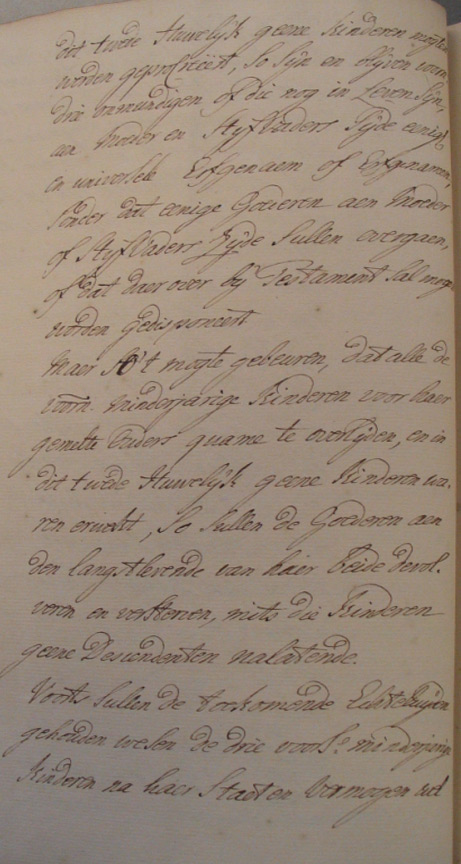 dit twede Huwelijk geene Kinderen mogte
worden geprofitëert, so sijn en blijven voorn.
drie onmundigen of die nog in Leven sijn,
aan Moeder en Styfvaders Syde eenige
en universele Erfgenaem of Erfgenamen,
sonder dat eenige Goederen aen Moeder
of Styfvaders Zyde sullen overgaen,
of dat daer over bij Testament sal mogen
worden gedisponeert
Maer so 't mogte gebeuren, dat alle de
voorn. minderjarige Kinderen voor haer
gemelte Ouders quame te overlijden, en in
dit twede Huwelijk geene Kinderen wa-
ren erweckt, so sullen de Goederen aen
den langstlevende van haer beide devol-
veren en versterven, mits die Kinderen
geene Descendenten nalatende.
Voorts sullen de toekomende Echteluijden
gehouden wesen de drie voors. minderjarige
Kinderen na haer Staet en Vermogen wel